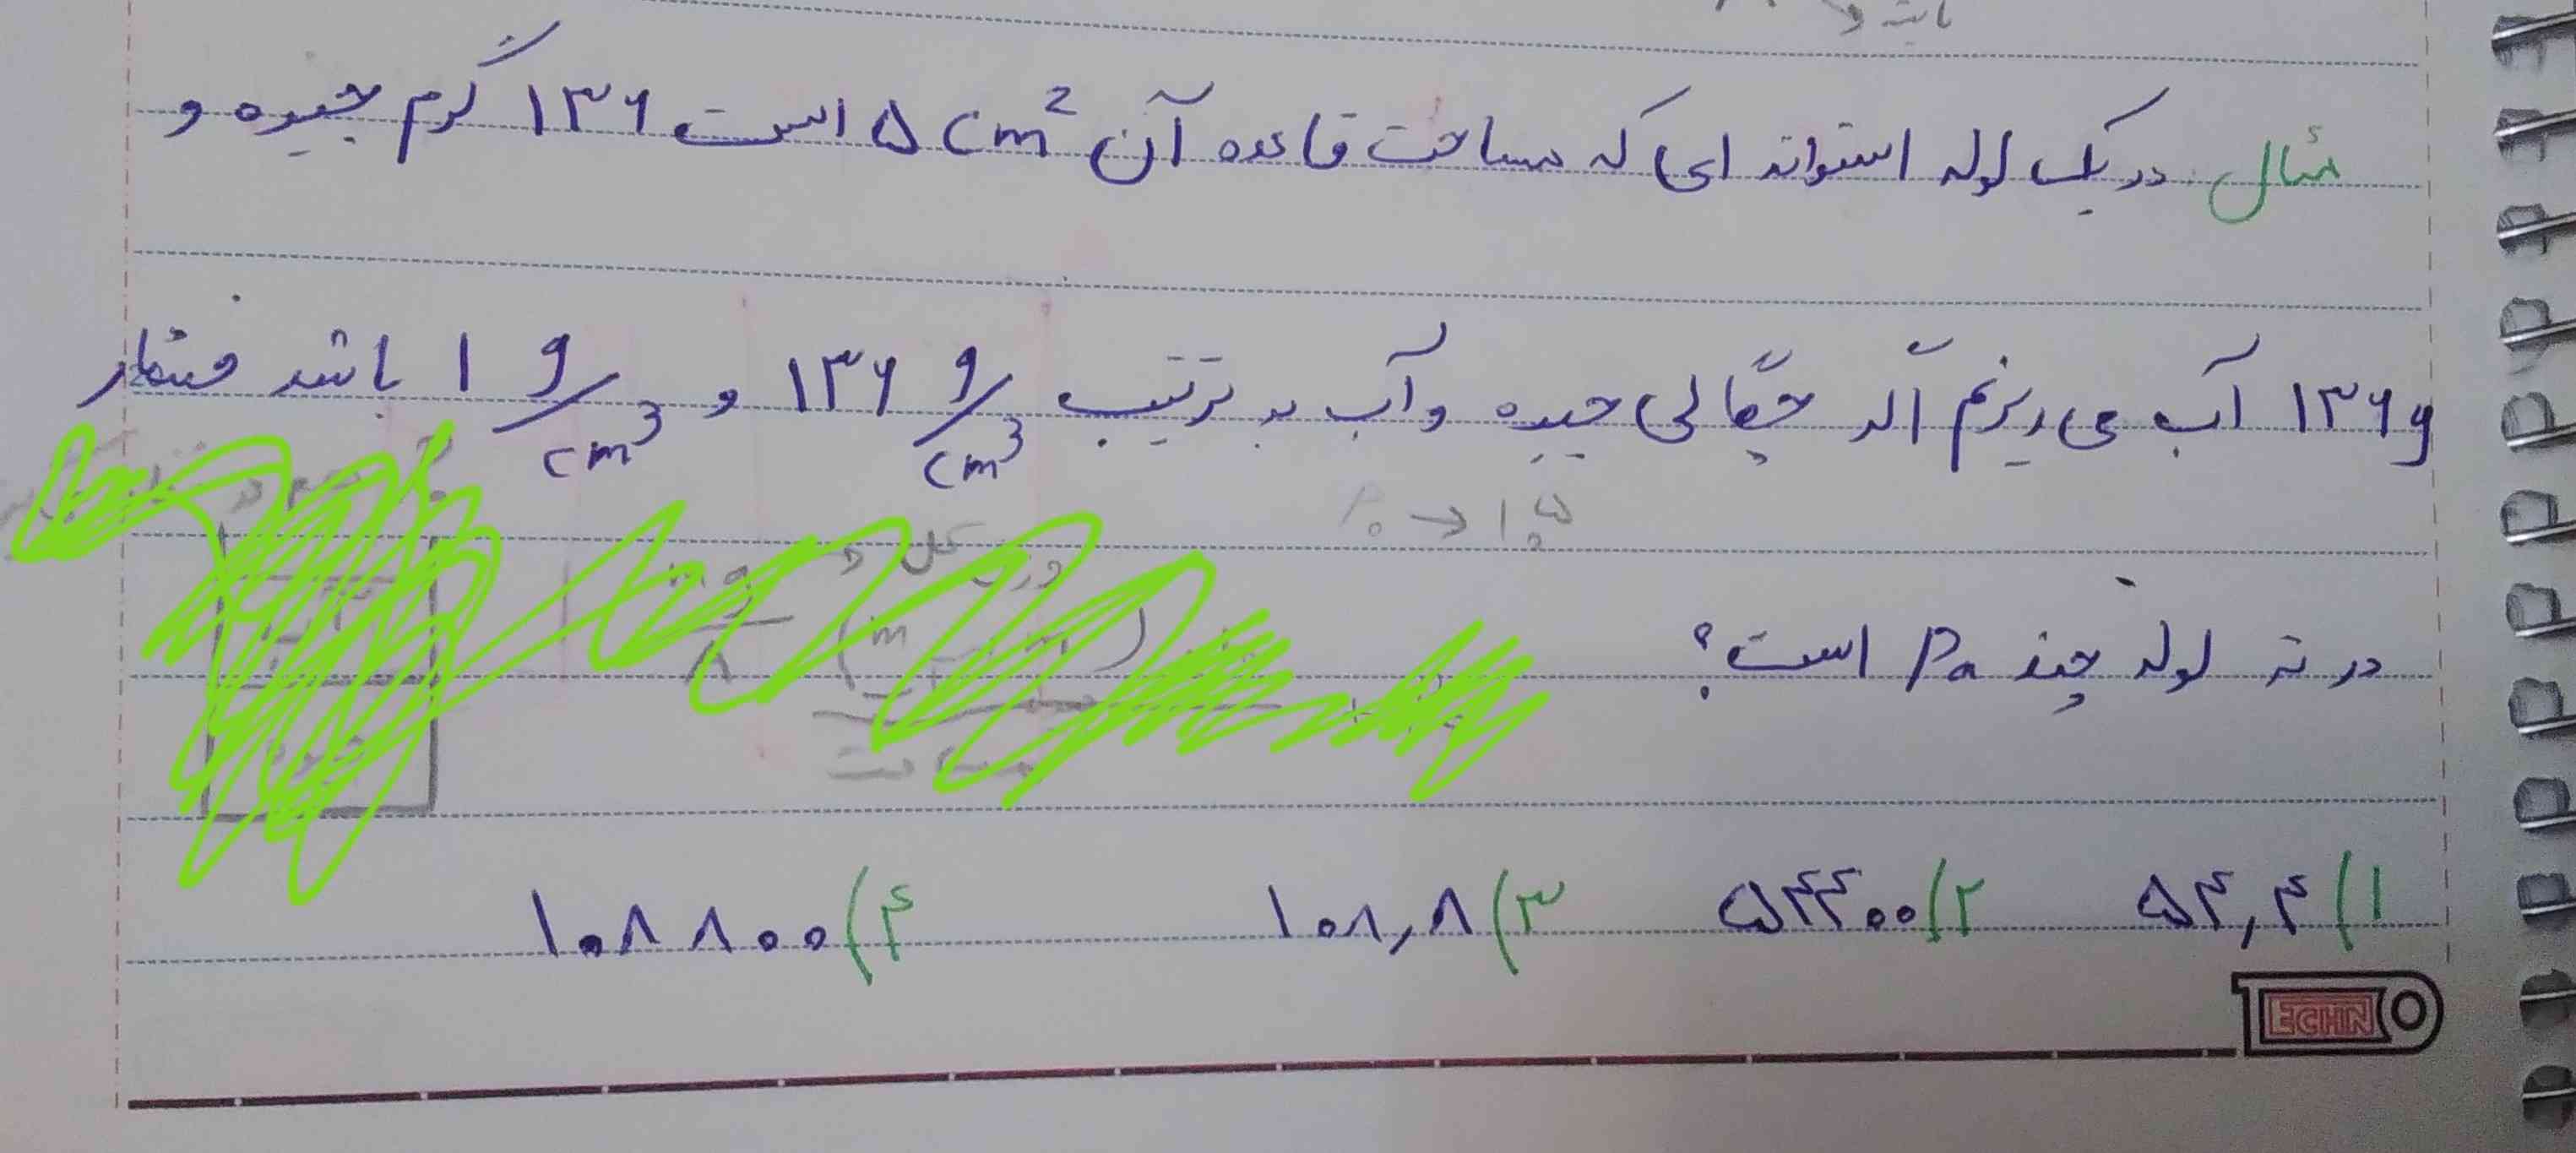 مثال در یک لوله استوانه ای که مساحت قاعده آن ۵ cm² است ۱۳۶ گرم جیوه و
۱۳۶g آب می ریزیم اگر چگالی جیوه و آب به ترتیب ۱۳۶ g/cm³ و ۱ g/cm³ باشد فشار
P₀ → ۱۰⁵
در ته لوله چند Pa است؟
۱) ۵۴,۴ ۲) ۵۴۴۰۰ ۳) ۱۰۸,۸ ۴) ۱۰۸۸۰۰
ECHN